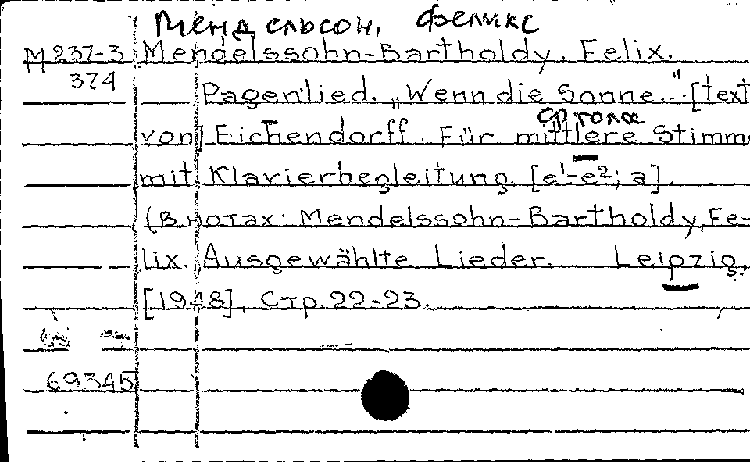 Мендельсон, Феликс
М 237-3 Mendelssohn-Bartholdy, Felix.
374 Pagenlied. „Wenn die Sonne.." [text
ср голос
von] Eichendorff. Für mittlere Stimme
mit Klavierbegleitung. [e¹-e²; a].
(В нотах: Mendelssohn-Bartholdy, Fe-
lix. Ausgewählte Lieder. Leipzig,
[1948], Стр. 22-23.
69345